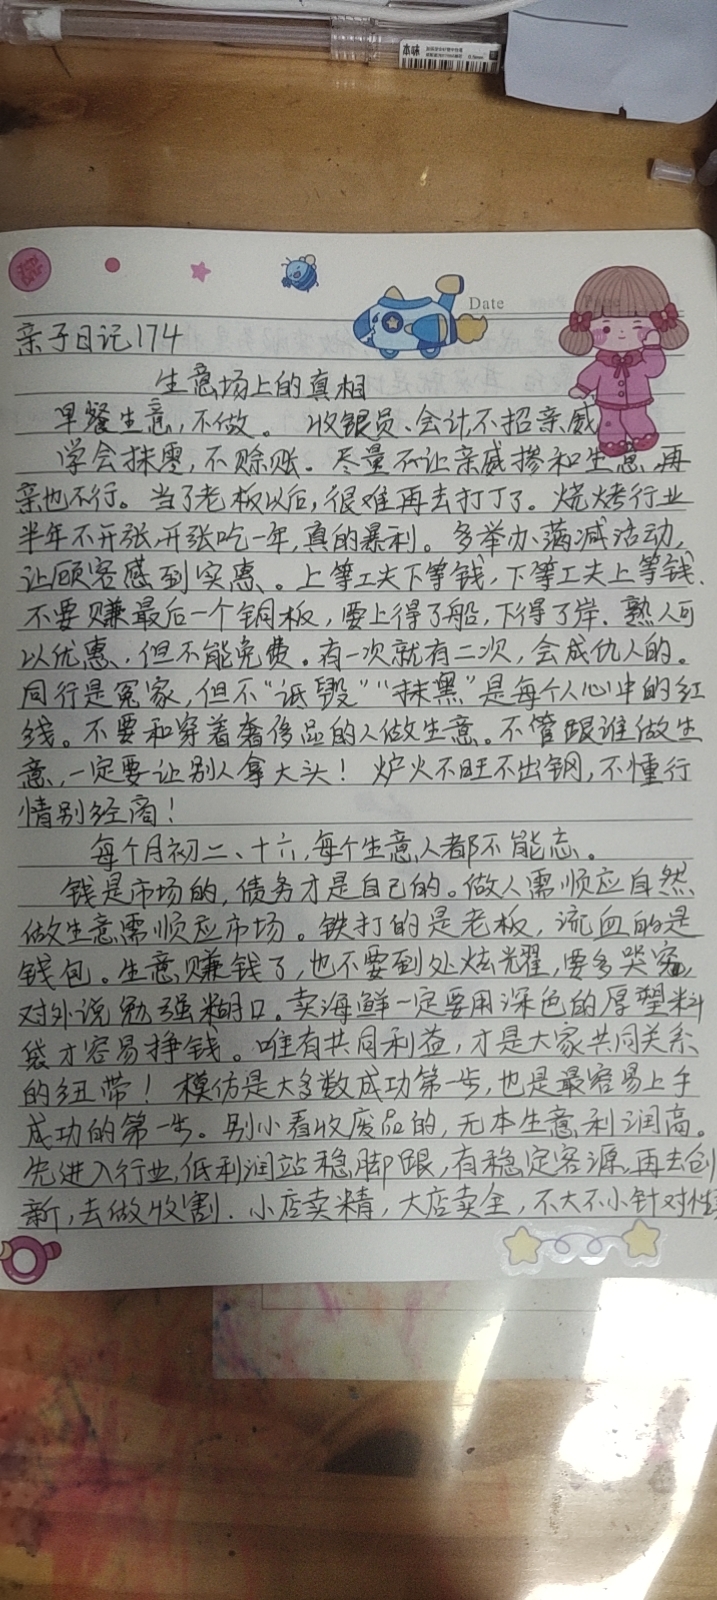 本味
Date
亲子日记174
生意场上的真相
早餐生意,不做。 收银员、会计不招亲戚
学会抹零,不赊账。尽量不让亲戚掺和生意,再
亲也不行。当了老板以后,很难再去打工了。烧烤行业
半年不开张,开张吃一年,真的暴利。多举办满减活动,
让顾客感到实惠。上等工夫下等钱,下等工夫上等钱.
不要赚最后一个铜板,要上得了船,下得了岸.熟人可
以优惠,但不能免费。有一次就有二次,会成仇人的。
同行是冤家,但不“诋毁”“抹黑”是每个人心中的红
线。不要和穿着奢侈品的人做生意。不管跟谁做生
意,一定要让别人拿大头! 炉火不旺不出钢,不懂行
情别经商!
每个月初二、十六,每个生意人都不能忘。
钱是市场的,债务才是自己的。做人需顺应自然
做生意需顺应市场。铁打的是老板,流血的是
钱包。生意赚钱了,也不要到处炫耀,要多哭穷,
对外说勉强糊口。卖海鲜一定要用深色的厚塑料
袋才容易挣钱。唯有共同利益,才是大家共同关系
的纽带! 模仿是大多数成功第一步,也是最容易上手
成功的第一步。别小看收废品的,无本生意利润高。
先进入行业,低利润站稳脚跟,有稳定客源,再去创
新,去做收割.小店卖精,大店卖全,不大不小针对性